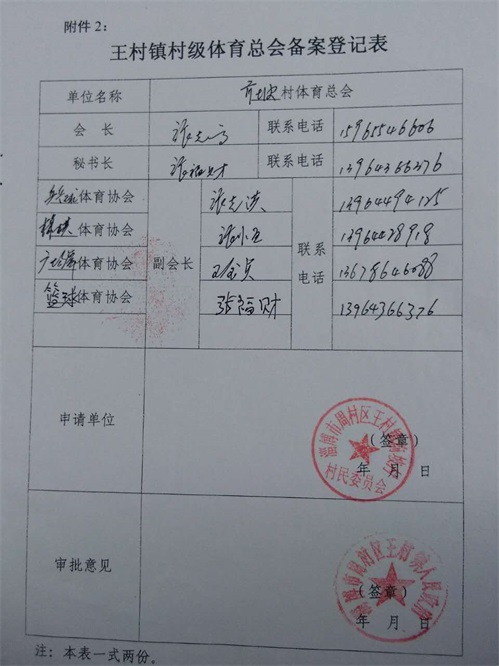 附件2：
王村镇村级体育总会备案登记表
单位名称 村体育总会
会 长 联系电话 15965546606
秘书长 张福财 联系电话 13964366376
体育协会 副会长 张志洪 联系电话 13964494125
棋牌体育协会 张小五
广场舞体育协会 13678646088
篮球体育协会 张福财 13964366376
申请单位
淄博市周村区王村镇
村民委员会
（签章）
年 月 日
审批意见
淄博市周村区王村镇人民政府
（签章）
年 月 日
注：本表一式两份。